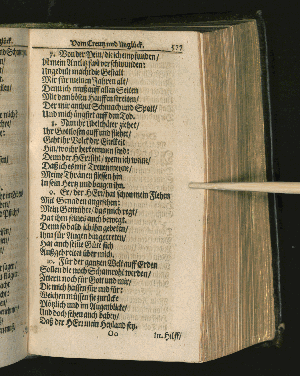 Vom Creutz und Unglück. 577
7. Von der Pein / die ich empfunden /
Ist mein Antlitz
Ungedult macht die Gestalt
Mir für meinen Jahren alt /
Denn ich muß auff allen Seiten
Mit dem bösen Hauffen streiten /
Der nur anthut Schmach und Spott /
Und mich ängstet auff den Tod.
8. Nun ihr Ubelthäter ziehet /
Ihr Gottlosen auff und fliehet /
Geht ihr Volck der Eitelkeit
Hin / wo ihr herkommen seyd:
Denn der HErr siht / wenn ich weine /
Daß ich es meine /
Meine Thränen fliessen ihm
In sein Hertz und beugen ihn.
9. Er / der HErr / hat schon mein Flehen
Mit Genaden angesehen:
Mein Gemüthe / das mich regt /
Hat ihm seines auch bewegt.
Denn so bald ich ihn gebeten /
Ihm für Augen hingetreten /
Hat auch seine Güte sich
Außgebreitet über mich.
10. Für der gantzen Welt auff Erden
Sollen die noch Schamroth werden /
Zittern noch für Gott und mir /
Die mich hassen für und für:
Weichen müssen sie zurücke
Plötzlich und im Augenblicke /
Und doch sehen auch dabey /
Daß der HErr mein Heyland sey.
Oo Im. Hilff /